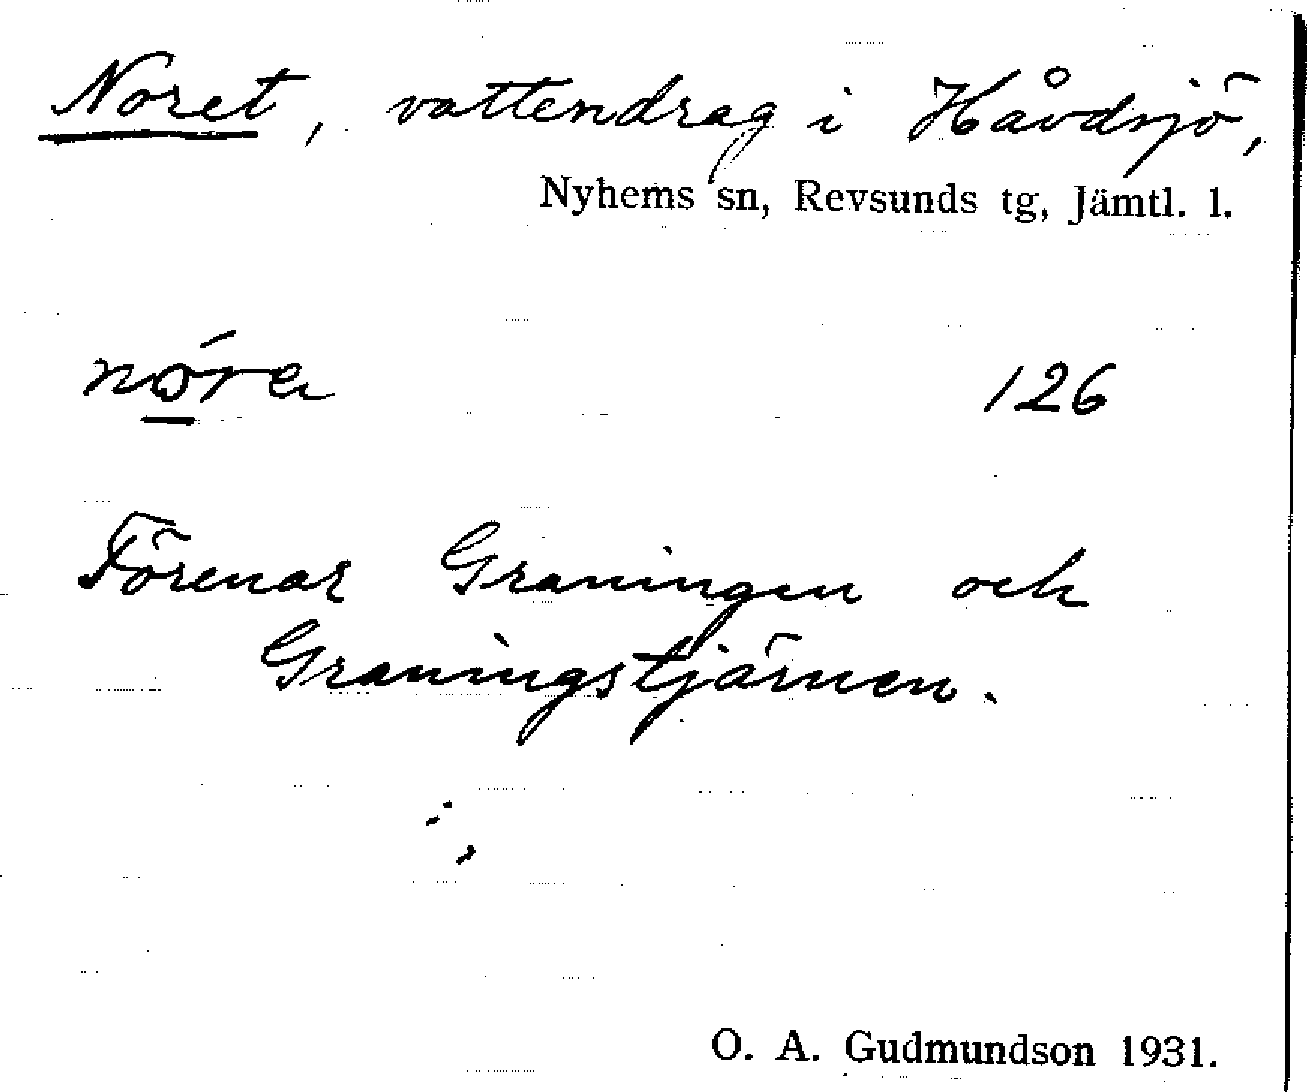 Noret, vattendrag i Håvdsjö,
Nyhems sn, Revsunds tg, Jämtl. l.
nó̱ra 126
Förenar Graningen och
Graningstjärnen.
O. A. Gudmundson 1931.